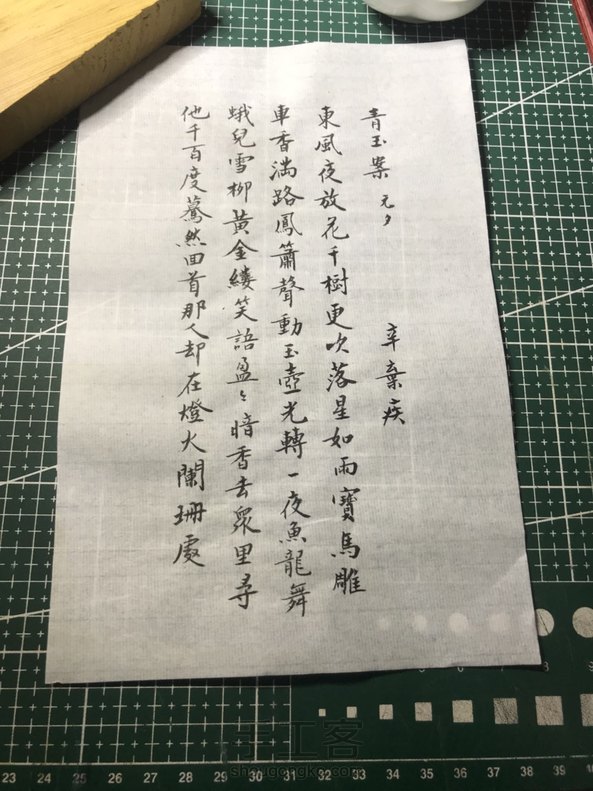 青玉案 元夕
辛棄疾
東風夜放花千樹更吹落星如雨寶馬雕
車香滿路鳳簫聲動玉壺光轉一夜魚龍舞
蛾兒雪柳黃金縷笑語盈々暗香去眾里尋
他千百度驀然回首那人却在燈火闌珊處
5 6 7 8 9
23 24 25 26 27 28 29 30 31 32 33 34 35 36 37 38 39
手工客
shougongke.com